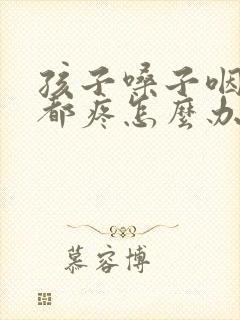 孩子嗓子咽
都疼怎麼办
慕容博